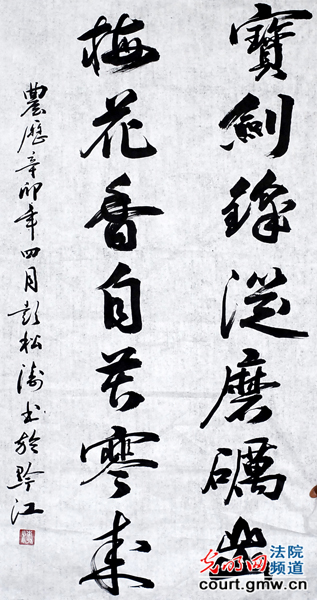 寶劍鋒從磨礪出
梅花香自苦寒來
農歷辛卯年四月彭松濤书於黔江
光明网
法院
频道
court.gmw.cn